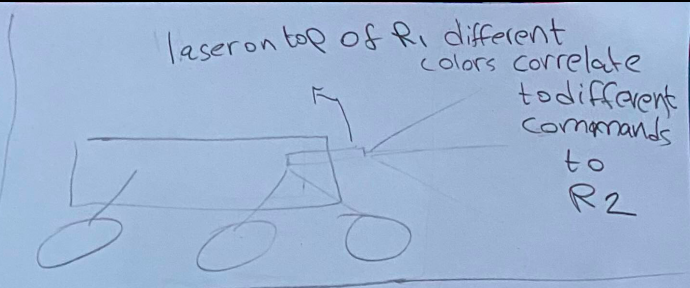 laser on top of R1 different
colors correlate
to different
commands
to
R2